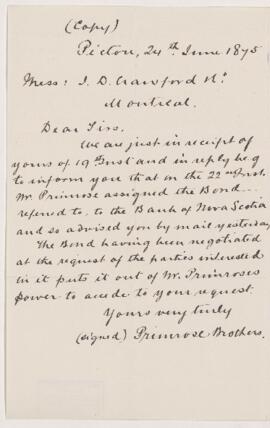 (Copy)
Pictou, 24th June 1875
Mess: J. D. Crawford &
Montreal.
Dear Sirs.
We are just in receipt of
yours of 19th Inst and in reply beg
to inform you that on the 22nd Inst.
Mr Primrose assigned the Bond
referred to, to the Bank of Nova Scotia
and so advised you by mail yesterday
The Bond having been negotiated
at the request of the parties interested
in it puts it out of Mr. Primroses
power to accede to your request
Yours very truly
(signed) Primrose Brothers.